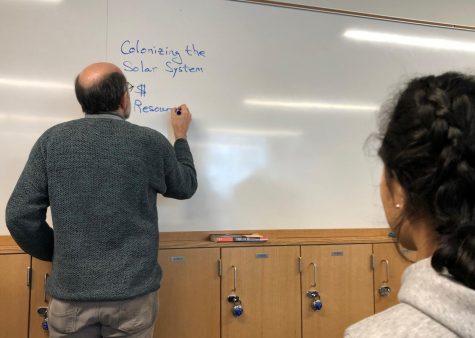 Colonizing the
Solar System
→ $
Resour